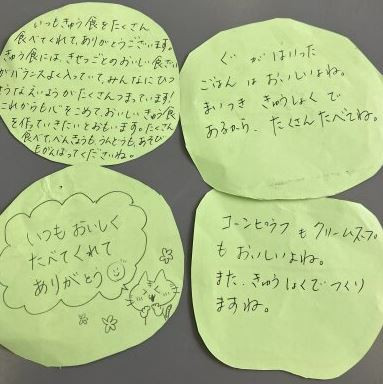 いつもきゅう食をたくさん
食べてくれて、ありがとうございます。
きゅう食には、きせつごとのおいしい食ざい
がバランスよく入っていて、みんなにひつ
ようなえいようがたくさんつまっています!
これからも心をこめて、おいしいきゅう食
を作っていきたいとおもいます。たくさん
食べて、べんきょうも、うんどうも、あそび
もがんばってくださいね。
ぐ が はいった
ごはん は おいしいよね。
まいつき きゅうしょく で
あるから、たくさんたべてね。
いつも おいしく
たべてくれて
ありがとう
コーンピラフ も クリームスープ
も おいしいよね。
また、きゅうしょくでつくり
ますね。